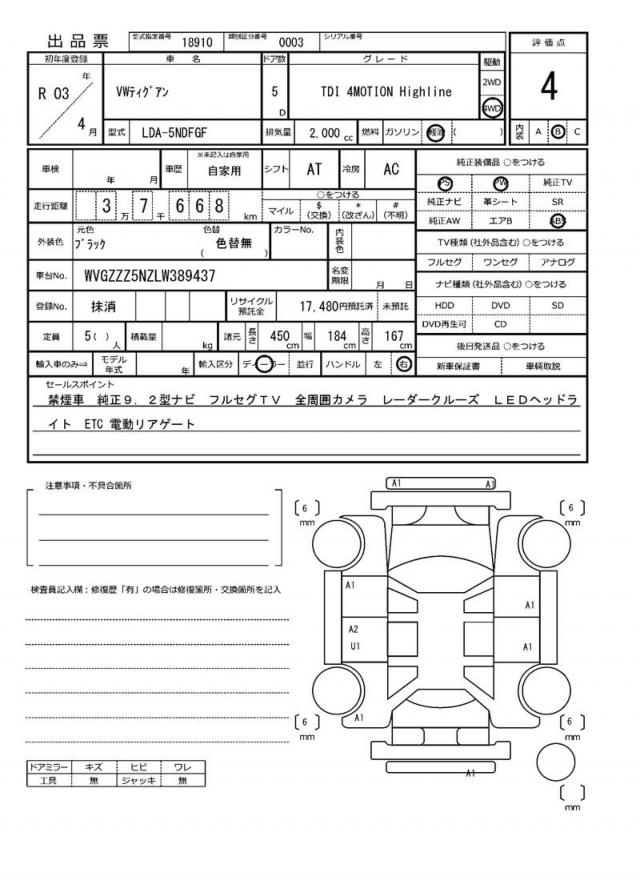 出品票 型式指定番号 18910 類別区分番号 0003 シリアル番号
初年度登録 車名 ドア数 グレード 駆動 評価点
R 03 年 4 月 VWティグアン 5 D TDI 4MOTION Highline 2WD 4WD 4
型式 LDA-5NDFGF 排気量 2,000 cc 燃料 ガソリン 軽油 ( ) 内装 A B C
車検 年 月 車歴 ※未記入は自家用 自家用 シフト AT 冷房 AC
走行距離 3 万 7 千 6 6 8 km ○をつける マイル $ (交換) * (改ざん) # (不明)
外装色 元色 ブラック 色替 ( 色替無 ) カラーNo. 内装色
車台No. WVGZZZ5NZLW389437 名変期限 月 日
登録No. 抹消 リサイクル預託金 17,480円預託済 未預託
定員 5( ) 人 積載量 kg 諸元 長さ 450 cm 幅 184 cm 高さ 167 cm
輸入車のみ⇒ モデル年式 年 輸入区分 ディーラー 並行 ハンドル 左 右
純正装備品 ○をつける
PS PW 純正TV
純正ナビ 革シート SR
純正AW エアB ABS
TV種類(社外品含む) ○をつける
フルセグ ワンセグ アナログ
ナビ種類(社外品含む) ○をつける
HDD DVD SD
DVD再生可 CD
後日発送品 ○をつける
新車保証書 車輌取説
セールスポイント
禁煙車 純正9.2型ナビ フルセグTV 全周囲カメラ レーダークルーズ LEDヘッドラ
イト ETC 電動リアゲート
注意事項・不具合箇所
検査員記入欄:修復歴「有」の場合は修復箇所・交換箇所を記入
ドアミラー キズ ヒビ ワレ
工具 無 ジャッキ 無
A1 A1
〔 6 〕 mm 〔 6 〕 mm
A1 A1
A2
U1 A1
〔 6 〕 mm A1 〔 6 〕 mm
A1
〔 〕 mm